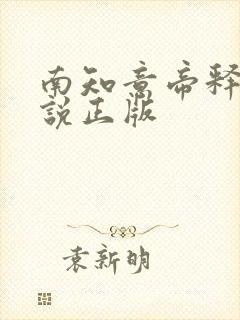 南知意帝释
說正版
袁新明